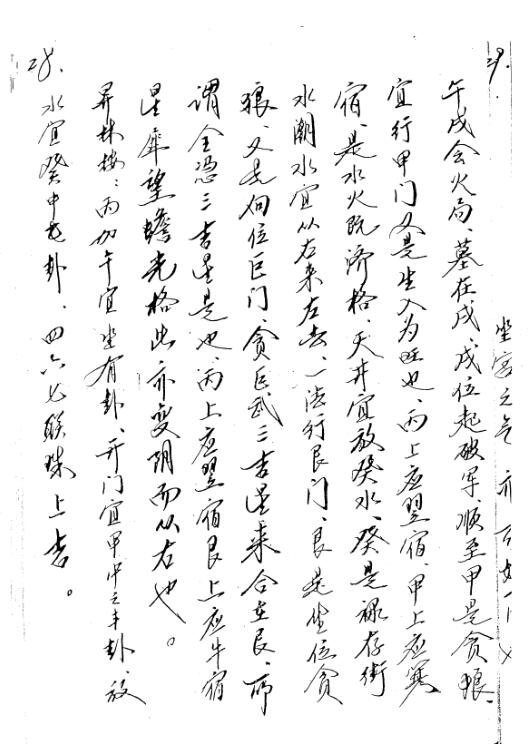 29.
坐宫之气亦百
午戌会火局、墓在戌、戌位起破军、顺至甲是贪狼、
宜行甲门又是生入为旺也、丙上应翌宿、甲上应箕
宿、是水火既济格、天井宜放癸水、癸是禄存街
水潮水宜从右来左去、一法行艮门、艮是坐位贪
狼、又是向位巨门、贪巨武三吉星来合在艮、所
谓全凭三吉星是也、丙上应翌宿艮上应牛宿
星犀望蟾光格此亦变阴而从右也。
昇林按：丙加午宜坐有卦、开门宜甲中之丰卦、放
28.
水宜癸中屯卦、四六七联珠上吉。